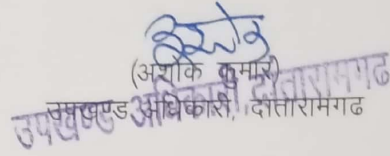 (अशोक कुमार)
उपखण्ड अधिकारी, दांतारामगढ
उपखण्ड अधिकारी दांतारामगढ